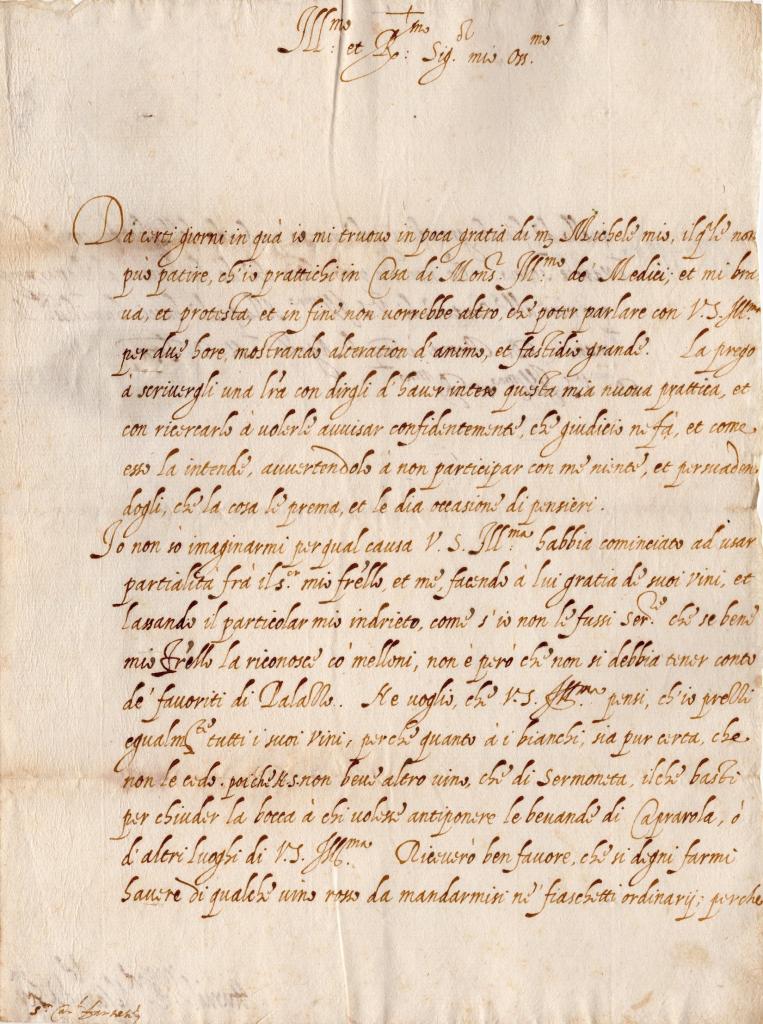 Ill:mo et R:mo Sig.or mio Oss.mo
Da certi giorni in quà io mi truovo in poca gratia di m. Michele mio, il q'le non
può patire, ch'io prattichi in Casa di Mons.r Ill:mo de' Medici; et mi bra
va, et protesta, et in fine non vorrebbe altro, che poter parlare con V.S. Ill.ma
per due hore, mostrando alteration d'animo, et fastidio grande. La prego
à scrivergli una l'ra con dirgli d'haver inteso questa mia nuova prattica, et
con ricercarlo à volerle avvisar confidentemente, che giudicio ne fà, et come
esso la intende, avvertendolo à non participar con me niente, et persuaden
dogli, che la cosa le prema, et le dia occasione di pensieri.
Io non sò imaginarmi per qual causa V. S. Ill:ma habbia cominciato ad usar
partialità frà il s.or mio fr'ello, et me, facendo à lui gratia de suoi vini, et
lassando il particolar mio indrieto, come s'io non le fussi ser.re che se bene
mio fr'ello la riconosce co' melloni, non è però che non si debbia tener conto
de' favoriti di Palazzo. Ne voglio, che V.S. Ill:ma pensi, ch'io prezzi
egualm.te tutti i suoi vini, perche quanto à i bianchi, sia pur certa, che
non le cedo. poiche N.S. non beve altro vino, che di Sermoneta, il che basti
per chiuder la bocca à chi volesse antiponere le bevande di Caprarola, ò
d'altri luoghi di V.S. Ill:ma Riceverò ben favore, che si degni farmi
havere di qualche vino rosso da mandarmisi ne' fiaschetti ordinarij; perche
s.r Car.l Farnese